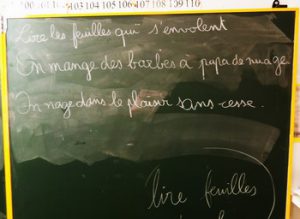 103 104 105 106 107 108 109 110
Lire les feuilles qui s'envolent
On mange des barbes à papa de nuage.
On nage dans le plaisir sans cesse.
lire feuilles